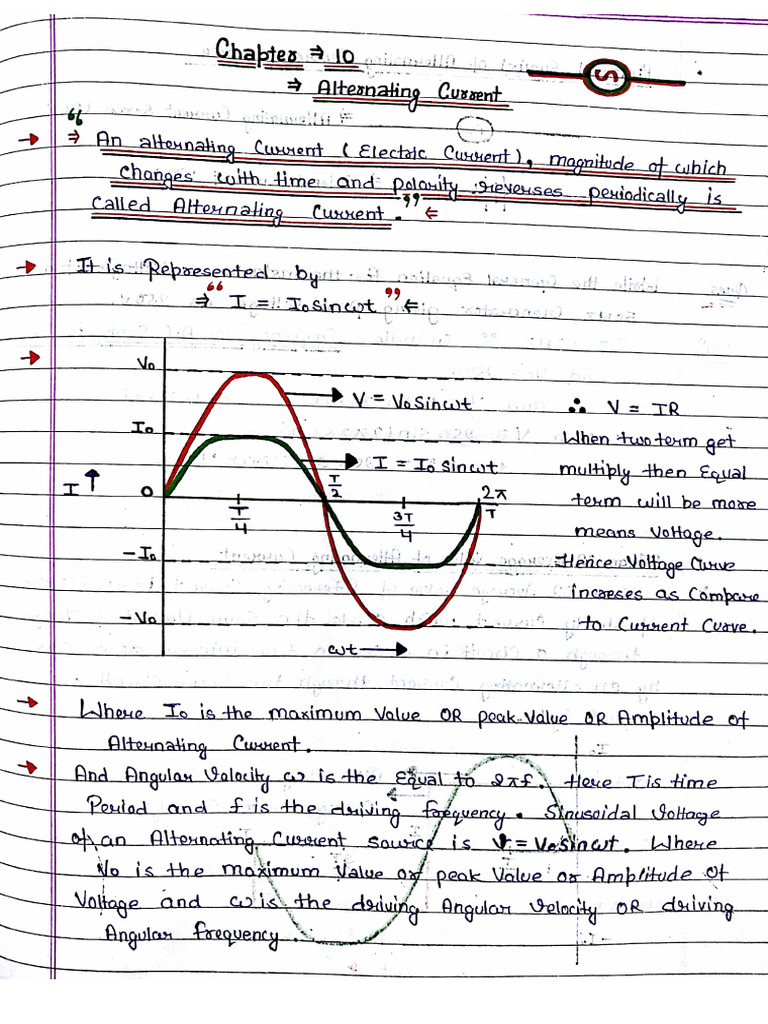 Chapter ⇒ 10
S
⇒ Alternating Current
“
⇒ An alternating Current (Electric Current), magnitude of which
changes with time and polarity reverses periodically is
Called Alternating Current.” ⇐
→ It is Represented by
⇒ “ I = I₀ sinωt ” ⇐
V₀
→ V = V₀ Sinωt
∴ V = IR
I₀
When two term get
→ I = I₀ sinωt
multiply then Equal
I ↑
0
T/4
T/2
3T/4
2π
T
term will be more
means Voltage.
-I₀
Hence Voltage Curve
increses as Compare
-V₀
to Current Curve.
ωt →
→ Where I₀ is the maximum Value OR peak Value OR Amplitude of
Alternating Current.
→ And Angular Velocity ω is the Equal to 2πf. Here T is time
Period and f is the driving frequency. Sinusoidal Voltage
of an Alternating Current source is V = V₀ sinωt. Where
V₀ is the maximum Value or peak Value or Amplitude of
Voltage and ω is the driving Angular Velocity OR driving
Angular frequency.